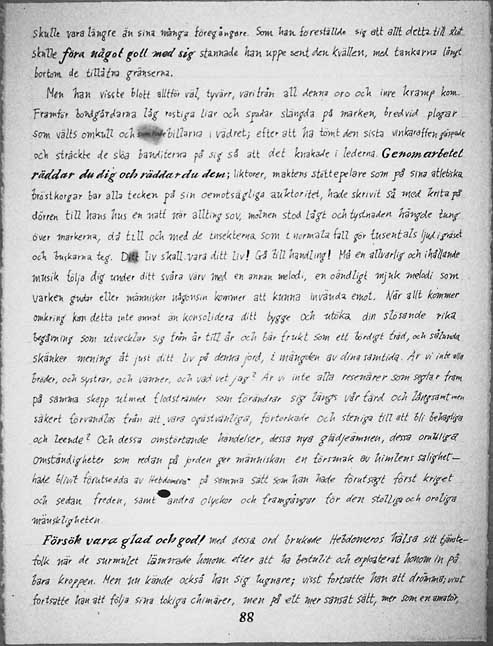 skulle vara längre än sina många föregångare. Som han föreställde sig att allt detta till slut
skulle föra något gott med sig stannade han uppe sent den kvällen, med tankarna långt
bortom de tillåtna gränserna.
Men han visste blott alltför väl, tyvärr, varifrån all denna oro och inre kramp kom.
Framför bondgårdarna låg rostiga liar och spadar slängda på marken, bredvid plogar
som välts omkull och billarna i vädret; efter att ha tömt den sista vinkaraffen gäspade
och sträckte de slöa banditerna på sig så att det knakade i lederna. Genom arbetet
räddar du dig och räddar du dem; liktorer, maktens stöttepelare som på sina atletiska
bröstkorgar bar alla tecken på sin oemotsägliga auktoritet, hade skrivit så med krita på
dörren till hans hus en natt när allting sov, molnen stod lågt och tystnaden hängde tung
över markerna, då till och med de insekterna som i normala fall gör tusentals ljud i gräset
och buskarna teg. Ditt liv skall vara ditt liv! Gå till handling! Må en allvarlig och ihållande
musik följa dig under ditt svåra värv med en annan melodi, en oändligt mjuk melodi som
varken gudar eller människor någonsin kommer att kunna invända emot. När allt kommer
omkring kan detta inte annat än konsolidera ditt bygge och utöka din slösande rika
begåvning som utvecklar sig från år till år och bär frukt som ett bördigt träd, och sålunda
skänker mening åt just ditt liv på denna jord, i mängden av dina samtida. Är vi inte alla
bröder, och systrar, och vänner, och vad vet jag? Är vi inte alla resenärer som seglar fram
på samma skepp utmed flodstränder som förändrar sig längs vår färd och långsamt men
säkert förvandlas från att vara ogästvänliga, förtorkade och steniga till att bli behagliga
och leende? Och dessa omstörtande händelser, dessa nya glädjeämnen, dessa
omständigheter som redan på jorden ger människan en försmak av himlens salighet—
hade blivit förutsedda av Hebdomeros på samma sätt som han hade förutsagt först kriget
och sedan freden, samt andra olyckor och framgångar för den stolliga och oroliga
mänskligheten.
Försök vara glad och god! med dessa ord brukade Hebdomeros hälsa sitt tjänste-
folk när de surmulet lämnade honom efter att ha bestulit och exploaterat honom in på
bara kroppen. Men nu kände också han sig lugnare; visst fortsatte han att drömma, visst
fortsatte han att följa sina tokiga chimärer, men på ett mer sansat sätt, mer som en amatör,
88